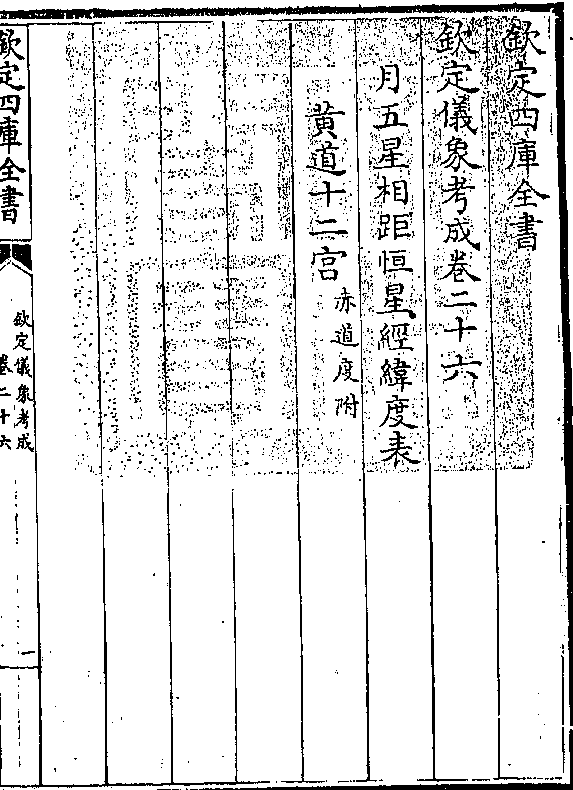 欽定四庫全書
欽定儀象考成卷二十六
月五星相距恒星經緯度表
黃道十二宮 赤道度附
欽定四庫全書
欽定儀象考成
卷二十六
一